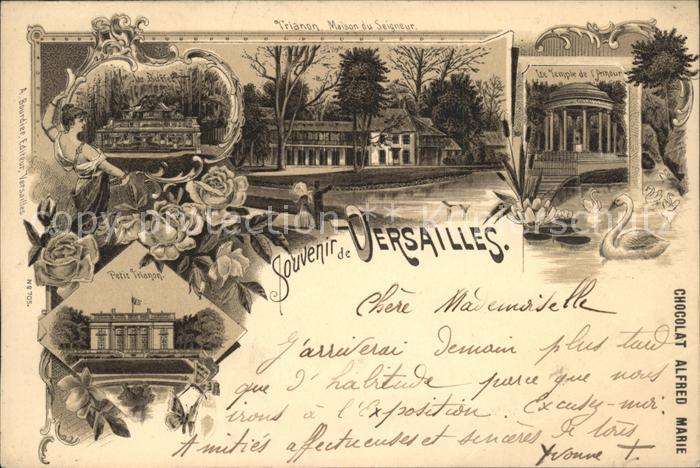 Trianon, Maison du Seigneur.
Le Buffet
Le Temple de l'Amour
A. Bourdier, Editeur, Versailles
Nº 705.
Petit Trianon.
Souvenir de VERSAILLES.
CHOCOLAT ALFRED MARIE
Chère Mademoiselle
J'arriverai Demain plus tard
que D'habitude parce que nous
irons à l'Exposition. Excusez-moi.
Amitiés affectueuses et sincères à tous
Yvonne T.
copy protection Kulturschutz